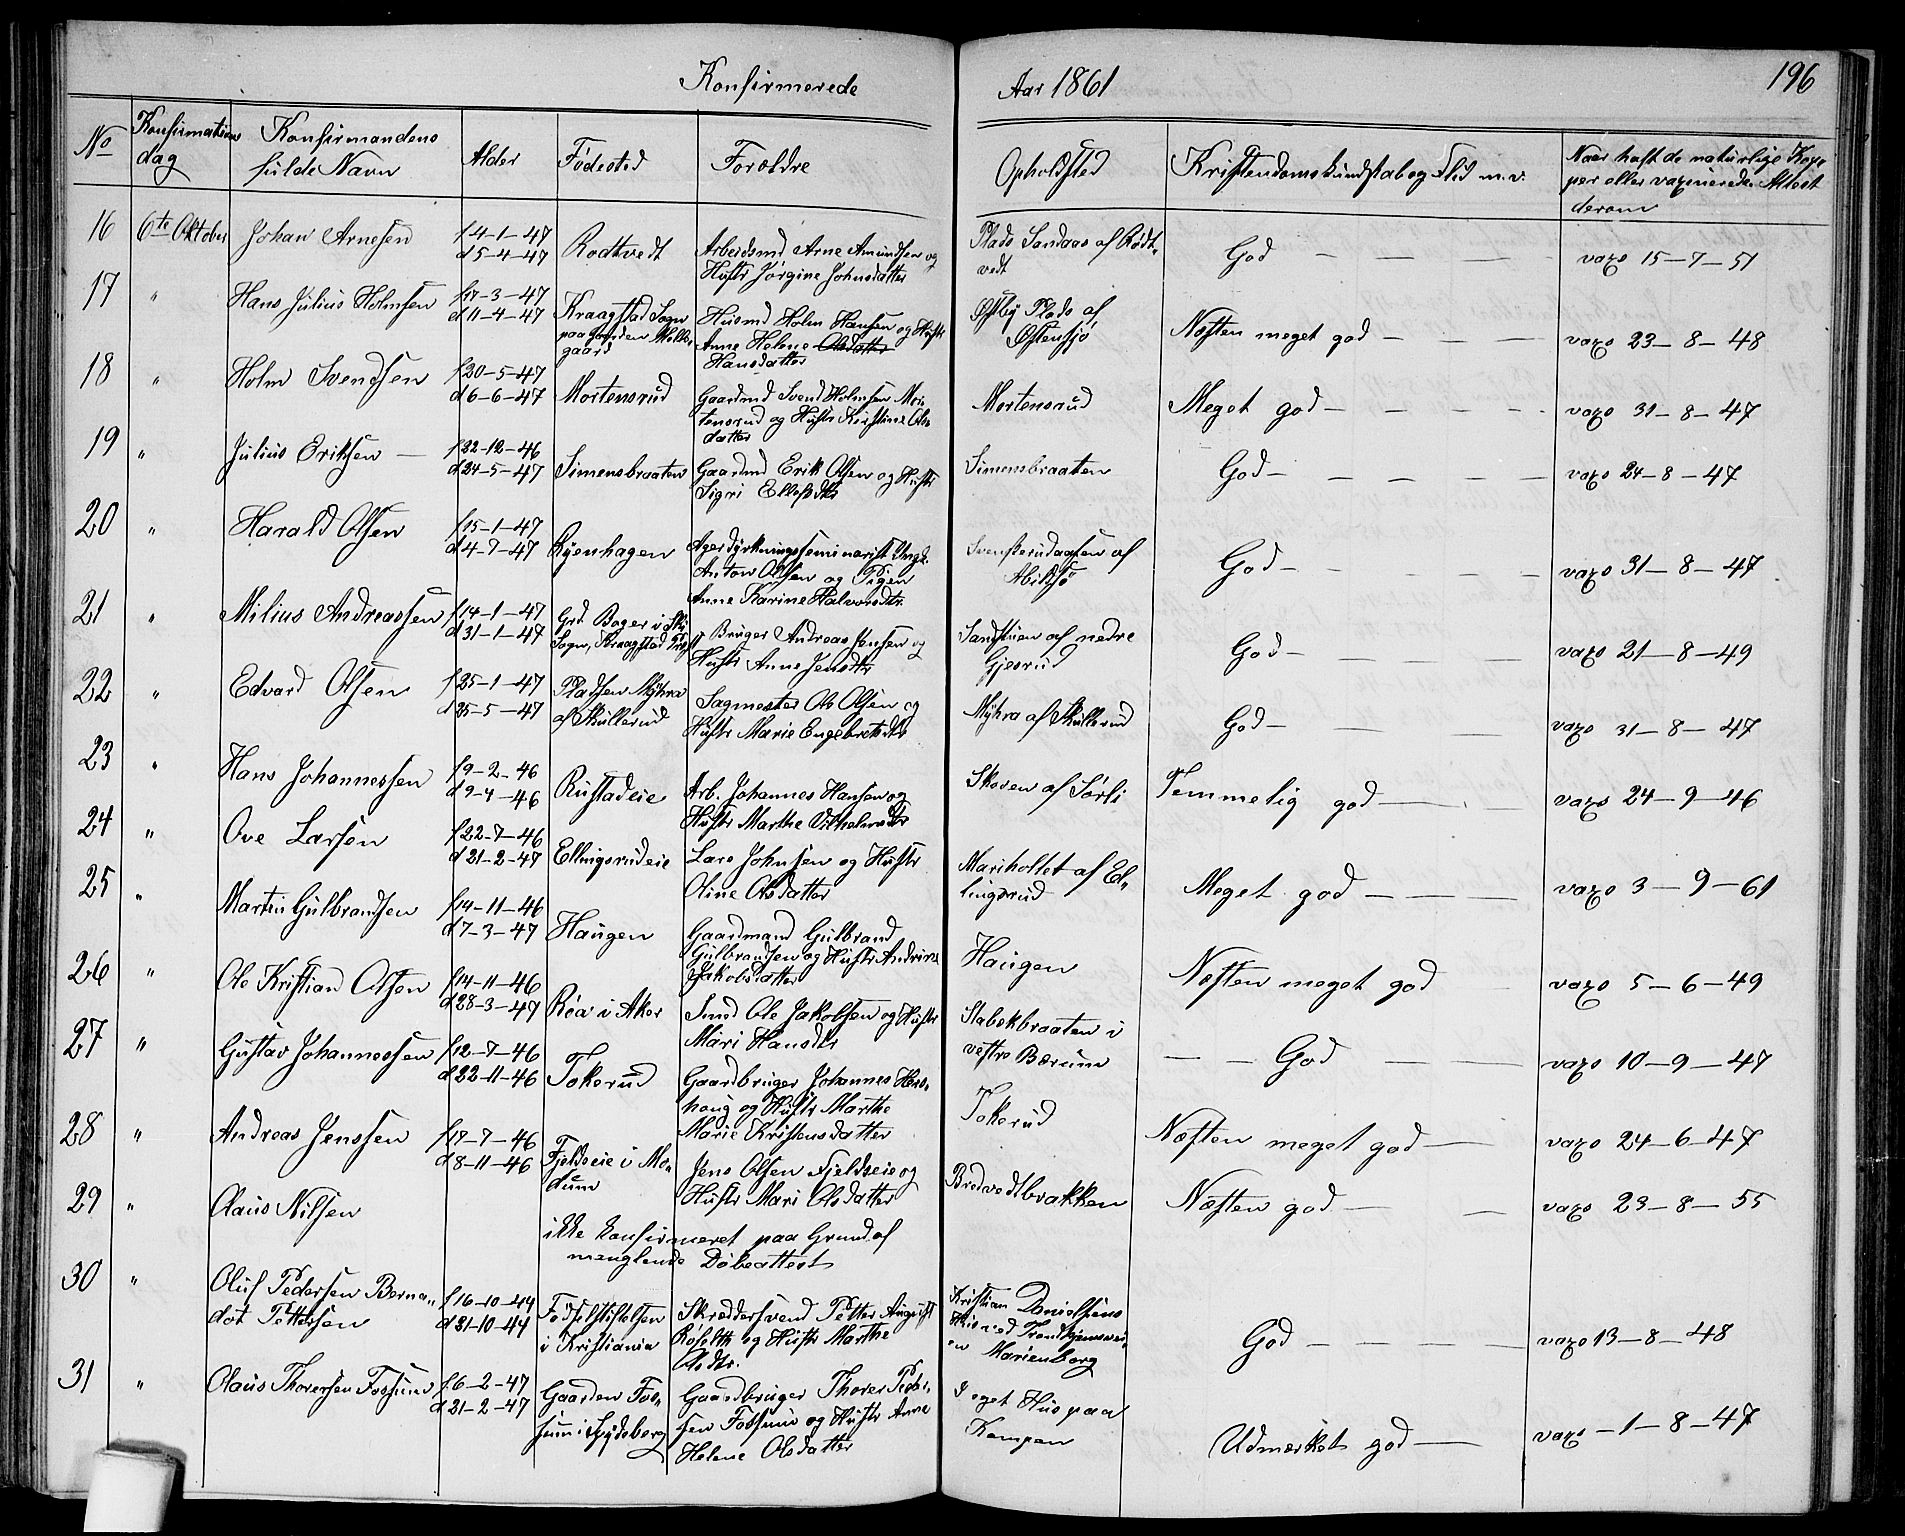 Konfirmerede Aar 1861 196
No Konfirmations dag Konfirmandens fulde Navn Alder Fødested Forældre Opholdsted Kristendomskundskab og Flid m.v. Naar haft de naturlige Kopper eller vaxinerede Attest derom
16 6te Oktober Johan Arnesen f 4-1-47 Rodtvedt Arbeidsmd Arne Amundsen og Plads Sandaas af Rødt- God vaxs 15-7-51
d 5-4-47 Hustr Jørgine Johnsdatter vedt
17 " Hans Julius Holmsen f 17-3-47 Kraagstad Sogn Husmd Holm Hansen og Hustr Østby Plads af Næsten meget god vaxs 23-8-48
d 11-4-47 paa Gaarden Anne Helene Olsdatter Østensjø
gaard Hansdatter
18 " Holm Svendsen f 20-5-47 Mortensrud Gaardmd Svend Holmsen Mor- Mortensrud Meget god vaxs 31-8-47
d 6-6-47 tensrud og Hustr Kirstine Ols
datter
19 " Julius Eriksen f 22-12-46 Simensbraaten Gaardmd Erik Olsen og Hustr Simensbraaten God vaxs 24-8-47
d 24-5-47 Sigri Ellefsdtr
20 " Harald Olsen f 15-1-47 Ryenhagen Agerdyrkningsseminarist Ungk. Svenskerudaasen af God vaxs 31-8-47
d 4-7-47 Anton Olsen og Pigen Abildsø
Anne Karine Halvorsdtr
21 " Milius Andreassen f 14-1-47 Grd Bøger i Ski Bruger Andreas Jensen og Sandstuen af nedre God vaxs 21-8-49
d 31-1-47 Sogn, Kraagstad Prst Hustr Anne Jensdtr Gjesrud
22 " Edvard Olsen f 25-1-47 Pladsen Myhra Sagmester Ole Olsen og Myhra af Skullerud God vaxs 31-8-47
d 25-5-47 af Skullerud Hustr Marie Engebretsdtr
23 " Hans Johannessen f 9-2-46 Rustadeie Arb. Johannes Hansen og Skoven af Sørli Temmelig god vaxs 24-9-46
d 9-4-46 Hustr Marthe Vilhelmsdtr
24 " Ove Larsen f 22-7-46 Ellingsrudeie Lars Johnsen og Hustr Mariholtet af El- Meget god vaxs 3-9-61
d 21-2-47 Oline Olsdatter lingsrud
25 " Martin Gulbrandsen f 14-11-46 Haugen Gaardmand Gulbrand Haugen Næsten meget god vaxs 5-6-49
d 7-3-47 Gulbrandsen og Hustr Andrine
Jakobsdatter
26 " Ole Kristian Olsen f 14-11-46 Røa i Aker Smed Ole Jakobsen og Hustr Stabekbraaten i God vaxs 10-9-47
d 28-3-47 Mari Hansdtr vestre Bærum
27 " Gustav Johannessen f 12-7-46 Tokerud Gaardbruger Johannes Hers- Tokerud Næsten meget god vaxs 24-6-47
d 22-11-46 houg og Hustr Marthe
Marie Kristensdatter
28 " Andreas Jenssen f 17-7-46 Fjeldseie i Mo- Jens Olsen Fjeldseie og Bredvedtbrakken Næsten god vaxs 23-8-55
d 8-11-46 dum Hustr Mari Olsdatter
29 " Olaus Nilsen ikke konfirmeret paa Grund af
manglende Døbeattest
30 " Oluf Pedersen Berna- f 16-10-44 Fødselsstiftelsen Skræddersvend Petter August Kristian Danielsens God vaxs 13-8-48
dot Pettersen d 31-10-44 i Kristiania og Hustr Marthe Hus ved Trondhjemsvei-
Olsdtr. en Marienborg
31 " Olaus Thoresen Fossum f 6-2-47 Gaarden Fos- Gaardbruger Thorer Peder- I eget Hus paa Udmærket god vaxs -1-8-47
d 21-2-47 sum i Spydeberg sen Fossum og Hustr Anne Kampen
Helene Olsdatter